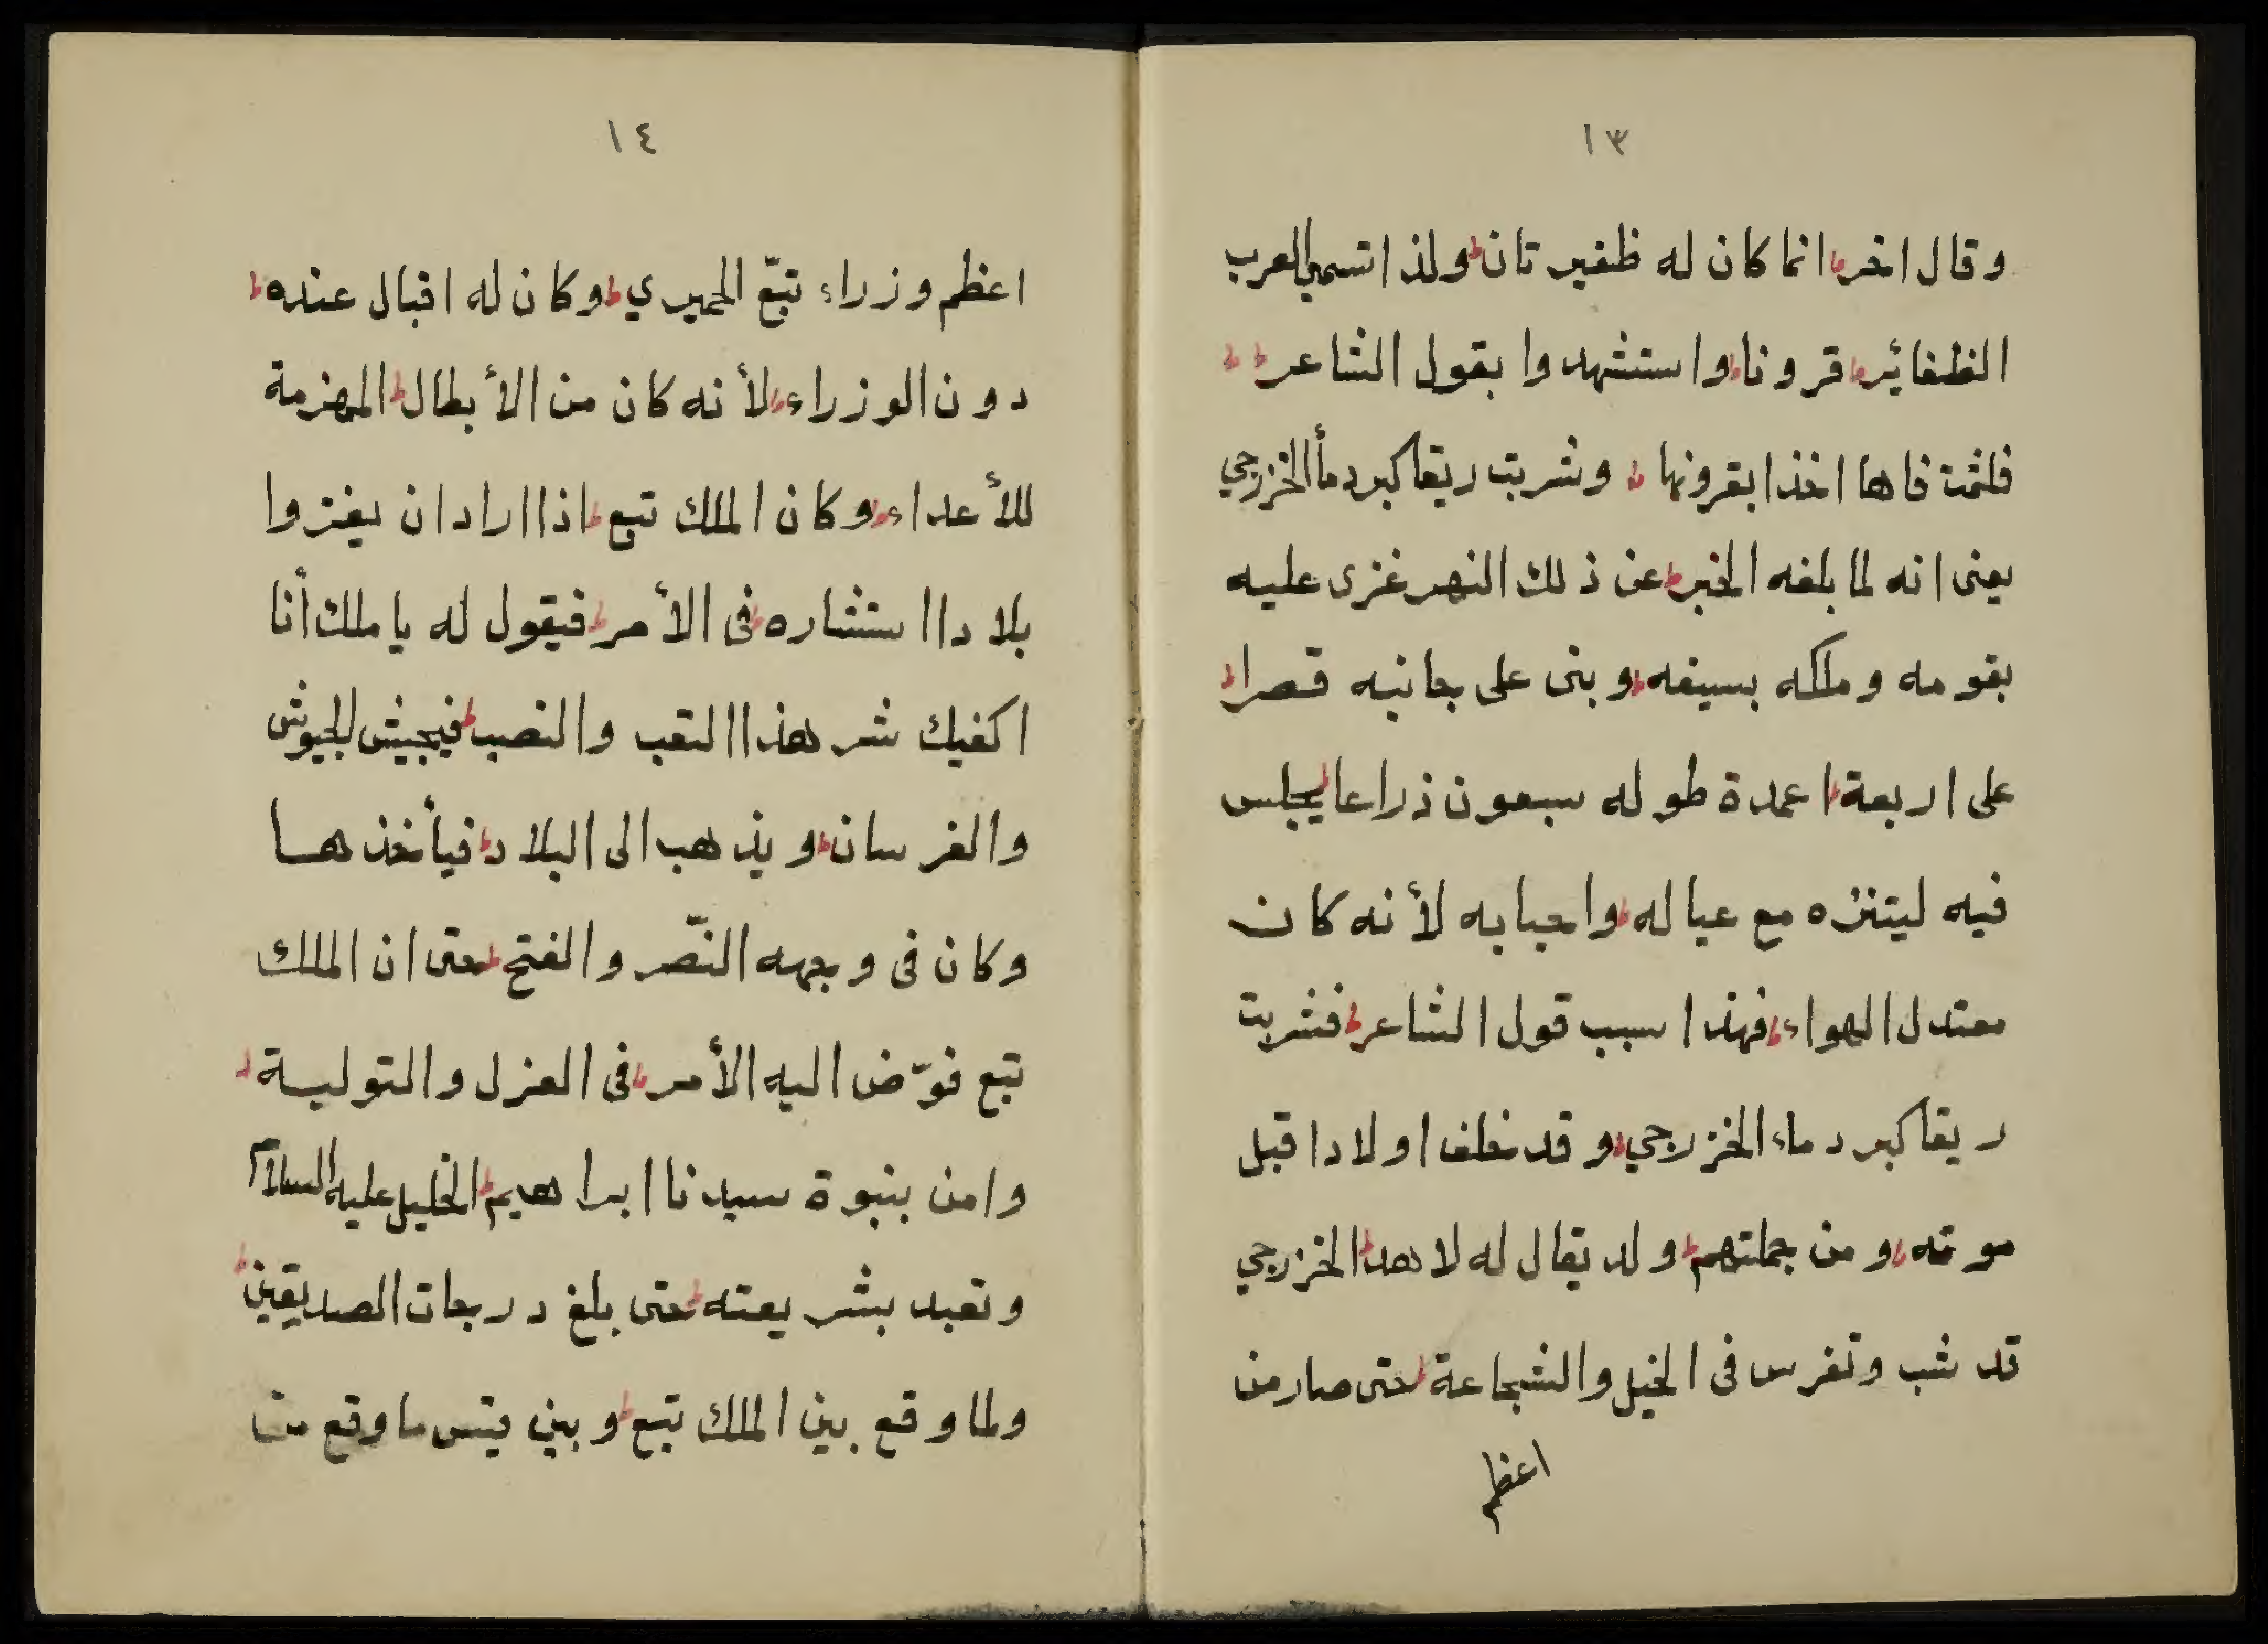 ١٣
وقال اخر انما كان له ظفيرتان ولذا تسمي العرب
الظفائير قرونا واستشهدوا بقول الشاعر
فلثمت فاها اخذا بقرونها وشربت ريقا كبرد مأ الخزرجي
يعنى انه لما بلغه الخبر عن ذلك النهر غزى عليه
بقومه وملكه بسيفه وبنى على جانبه قصرا
على اربعة اعمدة طوله سبعون ذراعا يجلس
فيه ليتنزه مع عياله واحبابه لأنه كان
معتدل الهواء فهذا سبب قول الشاعر فشربت
ريقا كبرد ماء الخزرجي وقد خلف اولادا قبل
موته ومن جملتهم ولد يقال له لاهد الخزرجي
قد شب وتفرس فى الخيل والشجاعة حتى صار من
اعظم
١٤
اعظم وزراء تبّع الحميري وكان له اقبال عنده
دون الوزراء لأنه كان من الأبطال المهزمة
للأعداء وكان الملك تبع اذا اراد ان يغزوا
بلادا استشاره فى الأمر فيقول له يا ملك أنا
اكفيك شر هذا التعب والنصب فيجيش الجيوش
والفرسان ويذهب الى البلاد فيأخذها
وكان فى وجهه النّصر والفتح حتى ان الملك
تبع فوّض اليه الأمر فى العزل والتولية
وامن بنبوة سيدنا ابراهيم الخليل عليه السلام
وتعبد بشريعته حتى بلغ درجات الصديقين
ولما وقع بين الملك تبع وبين قيس ما وقع من